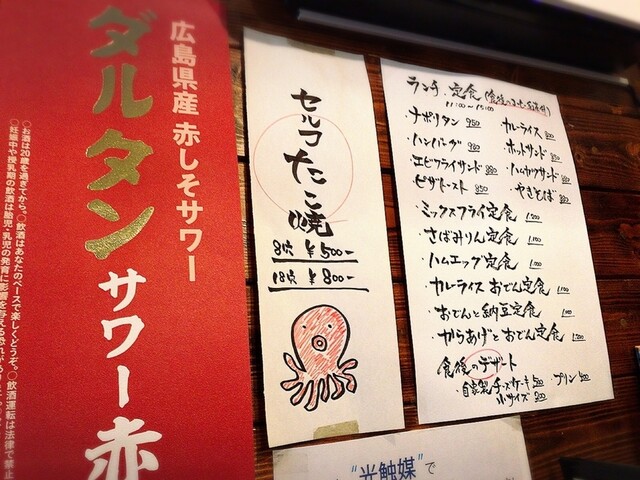 広島県産 赤しそサワー
ダルタン
サワー赤
○お酒は20歳を過ぎてから。○飲酒はあなたのペースで楽しくどうぞ。○飲酒運転は法律で禁止
○妊娠中や授乳期の飲酒は胎児・乳児の発育に影響を与える恐れがあり
セルフたこ焼
8ケ ¥500-
18ケ ¥800-
ランチ.定食
11:00〜15:00
・ナポリタン 950
・ハンバーグ 950
・エビフライサンド 880
・ピザトースト 850
カレーライス
ホットサンド
ハムカツサンド
やきそば
・ミックスフライ定食 1,200
・さばみりん定食 1,100
・ハムエッグ定食 1,100
・カレーライス おでん定食
・おでんと納豆定食 1,100
・からあげとおでん定食 1,200
食後のデザート
・自家製チーズケーキ 500
小サイズ
プリン
"光触媒"で